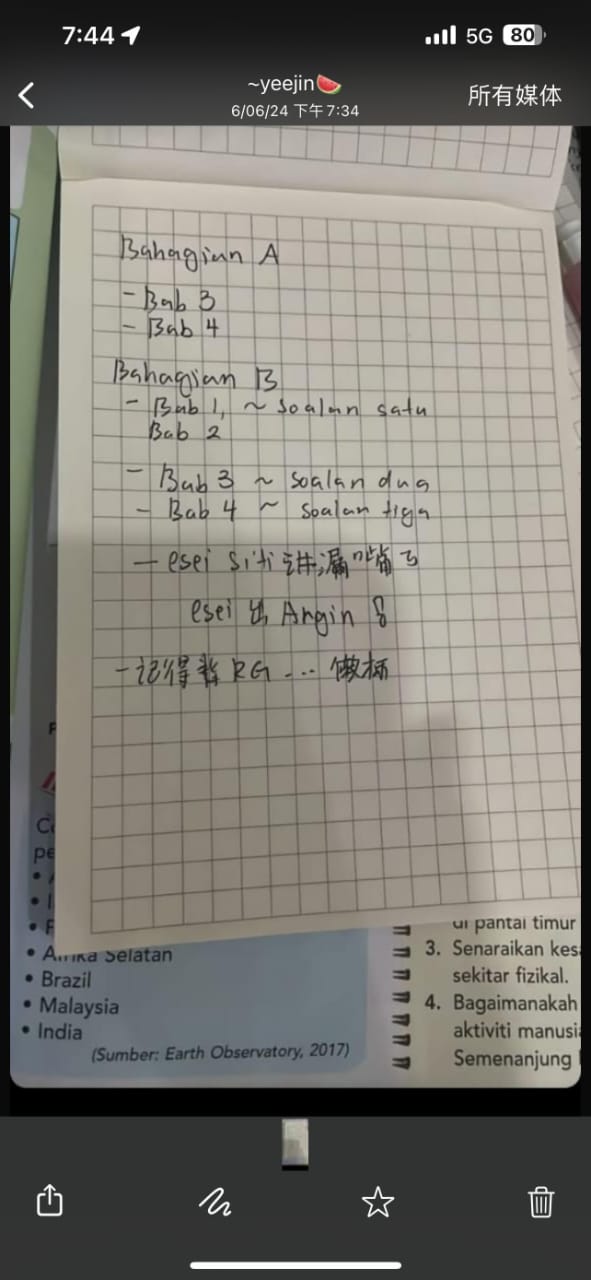 7:44
5G 80
~yeejin🍉
6/06/24 下午7:34
所有媒体
Bahagian A
- Bab 3
- Bab 4
Bahagian B
- Bab 1, ~ soalan satu
Bab 2
- Bab 3 ~ soalan dua
- Bab 4 ~ soalan tiga
- esei siti 讲漏嘴了
esei 出 Angin
- 记得 RG ... 做
Selatan
• Brazil
• Malaysia
• India
(Sumber: Earth Observatory, 2017)
di pantai timur
3. Senaraikan
sekitar fizikal.
4. Bagaimanakah
aktiviti
Semenanjung